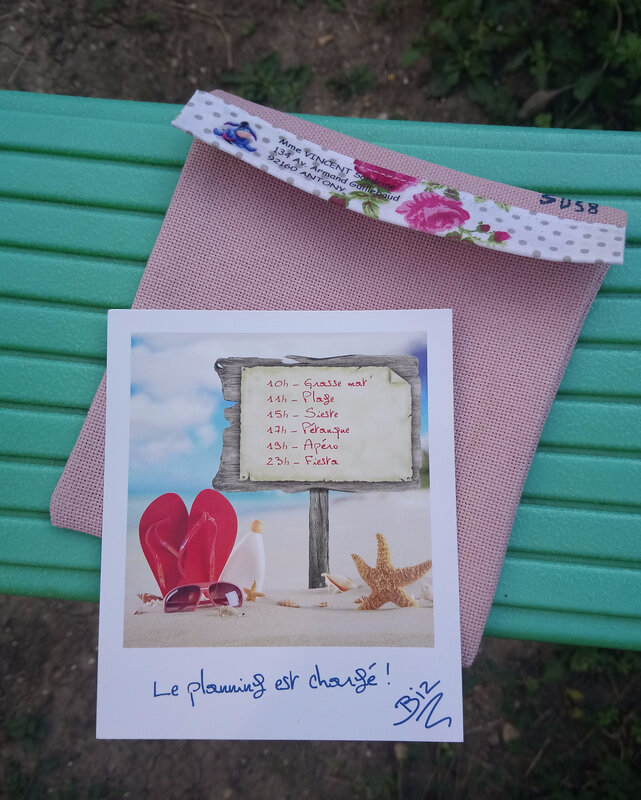 Mme VINCENT
134 Av. Armand Guillebaud
92160 ANTONY
SUSB
10h – Grasse mat'
11h – Plage
15h – Sieste
17h – Pétanque
19h – Apéro
23h – Fiesta
Le planning est chargé !
Biz